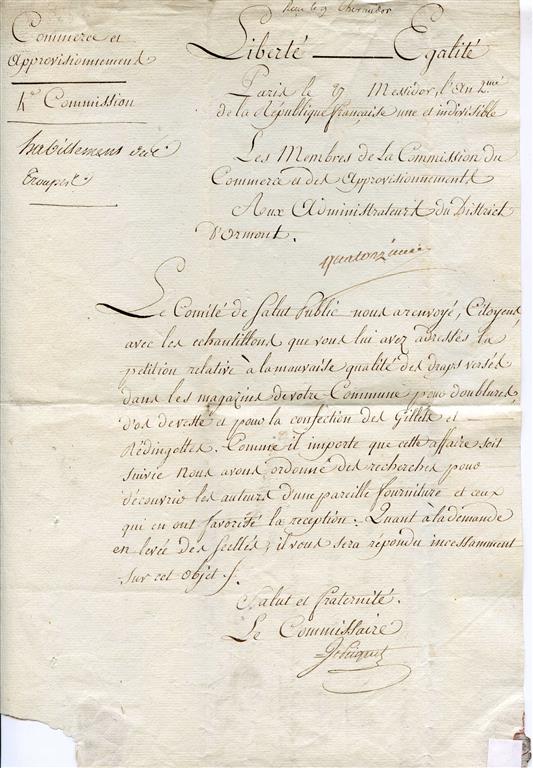 Reçu le 9 Thermidor
Commerce et
Approvisionnements
4e Commission
habillemens des
troupes.
Liberté Egalité
Paris le 27 Messidor, l'An 2me
de la République française une et indivisible
Les Membres de la Commission du
Commerce et des Approvisionnements
Aux Administrateurs du District
d'Ormont.
Le Comité de Salut Public nous a renvoyé, Citoyens,
avec les echantillons que vous lui avez adressés la
petition relative à la mauvaise qualité des draps versés
dans les magazins de votre Commune pour doublures,
d'os de veste et pour la confection des Gillets et
Rédingottes. Comme il importe que cette affaire soit
suivie Nous avons ordonné des recherches pour
découvrir les auteurs d'une pareille fourniture et ceux
qui en ont favorisé la reception. Quant à la demande
en levée des scellés, il vous sera répondu incessamment
sur cet objet.
Salut et fraternité.
Le Commissaire